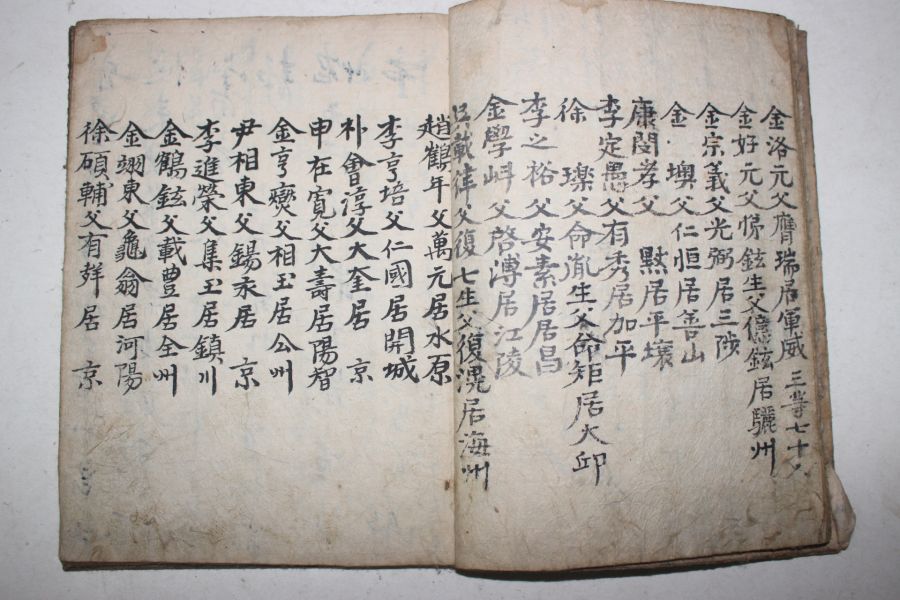 金洛元父膺瑞居軍威 三等七十人
金好元父悌鉉生父億鉉居驪州
金宗義父光弼居三陟
金 墺父仁恒居善山
康閔孝父 黙居平壤
李定愚父有秀居加平
徐 璨父命胤生父命矩居大邱
李之裕父安素居居昌
金學 父啓溥居江陵
呂載 父復七生父復滉居海州
趙鶴年父萬元居水原
李亨培父仁國居開城
朴會淳父大奎居 京
申在寬父大壽居陽智
金亨燮父相玉居公州
尹相東父錫永居 京
李進榮父集玉居鎮川
金鶴鉉父載豊居全州
金翊東父龜翁居河陽
徐碩輔父有 居 京